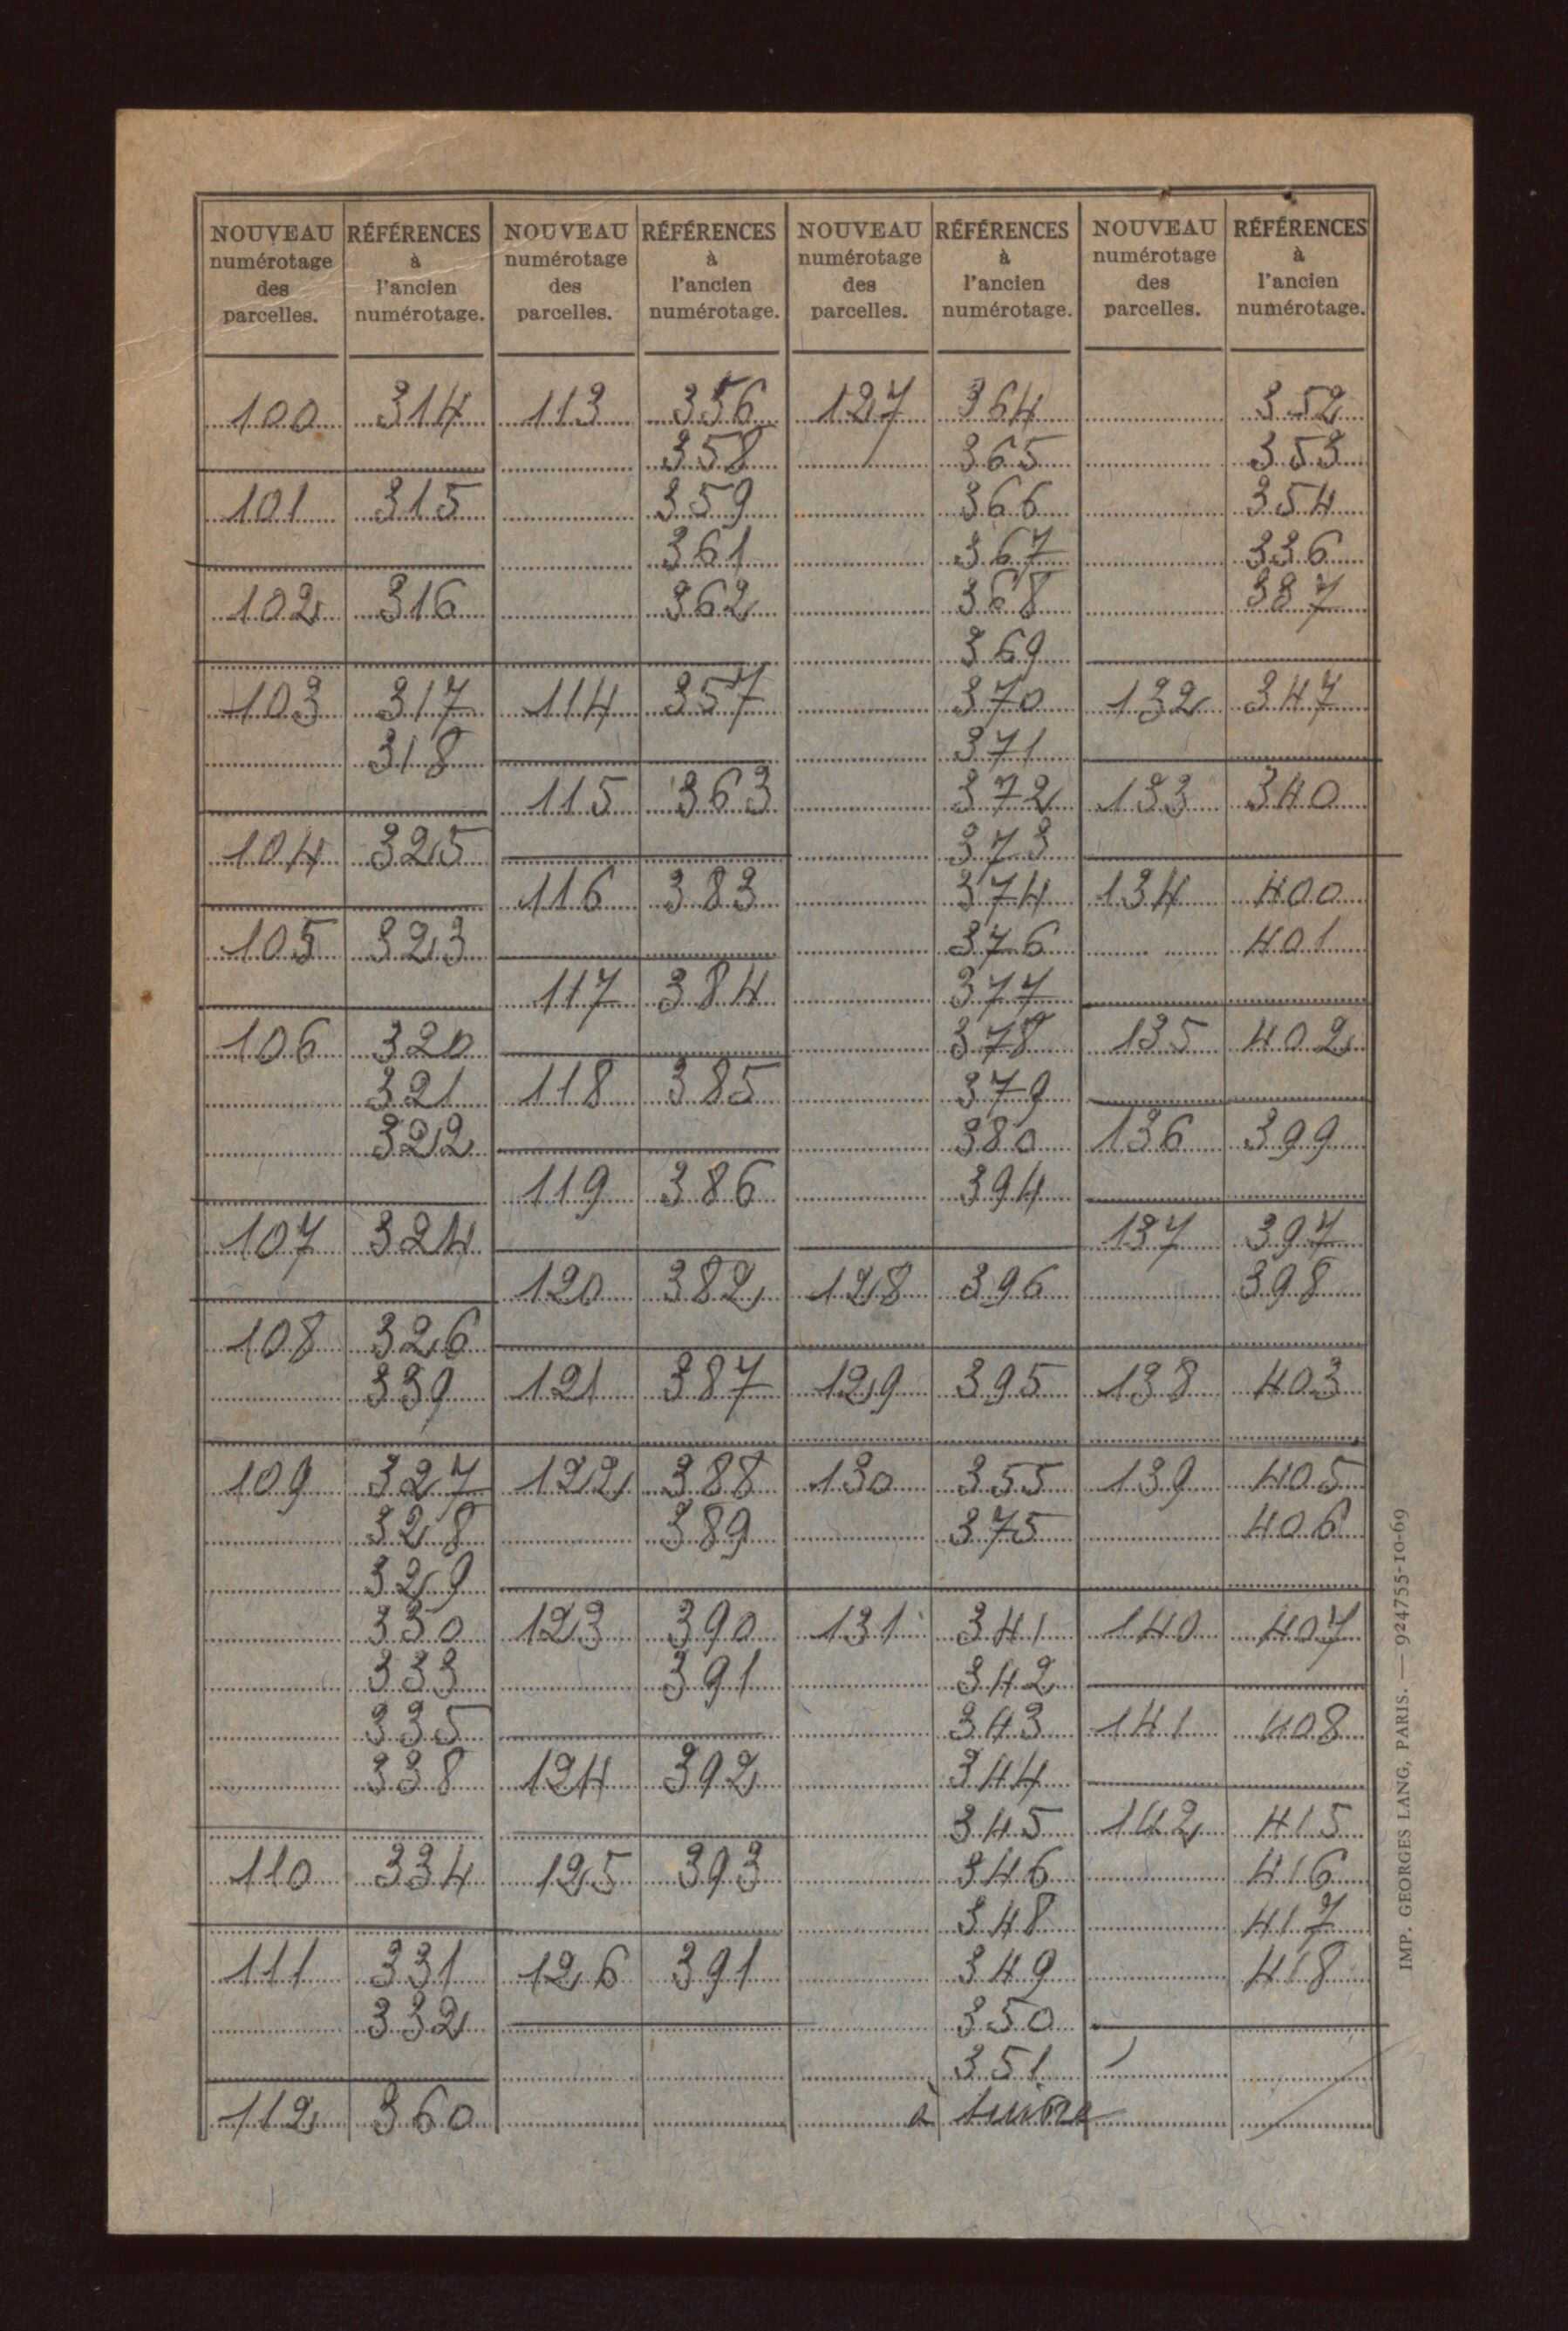 NOUVEAU numérotage des parcelles. RÉFÉRENCES à l'ancien numérotage.
100 314
101 315
102 316
103 317
318
104 325
105 323
106 320
321
322
107 324
108 326
339
109 327
328
329
330
333
335
338
110 334
111 331
332
112 360
NOUVEAU numérotage des parcelles. RÉFÉRENCES à l'ancien numérotage.
113 356
358
359
361
362
114 357
115 363
116 383
117 384
118 385
119 386
120 382
121 387
122 388
389
123 390
391
124 392
125 393
126 391
NOUVEAU numérotage des parcelles. RÉFÉRENCES à l'ancien numérotage.
127 364
365
366
367
368
369
370
371
372
373
374
376
377
378
379
380
394
128 396
129 395
130 355
375
131 341
342
343
344
345
346
348
349
350
351
à suivre
NOUVEAU numérotage des parcelles. RÉFÉRENCES à l'ancien numérotage.
352
353
354
336
337
132 347
133 340
134 400
401
135 402
136 399
137 397
398
138 403
139 405
406
140 407
141 408
142 415
416
417
418
IMP. GEORGES LANG, PARIS. — 924755-10-69